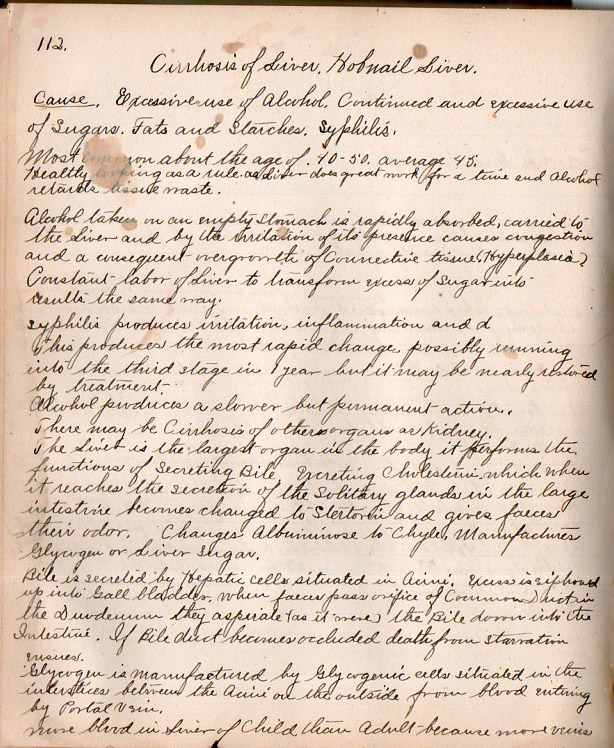 112.
Cirrhosis of Liver. Hobnail Liver.
Cause. Excessive use of Alcohol. Continued and excessive use
of Sugars. Fats and Starches. Syphilis.
Most common about the age of. 40-50. average 45.
Healthy looking as a rule. as Liver does great work for a time and Alcohol
retards tissue waste.
Alcohol taken on an empty stomach is rapidly absorbed, carried to
the Liver and by the irritation of its presence causes congestion
and a consequent overgrowth of Connective tissue (Hyperplasia)
Constant labor of Liver to transform excess of Sugar into
results the same way.
Syphilis produces irritation, inflammation and d
This produces the most rapid change, possibly running
into the third stage in 1 year but it may be nearly restored
by treatment.
Alcohol produces a slower but permanent action.
There may be Cirrhosis of other organs as Kidney.
The Liver is the largest organ in the body it performs the
functions of Secreting Bile, Excreting Cholesterin, which when
it reaches the secretion of the Solitary glands in the large
intestine becomes changed to Stertorin and gives faeces
their odor. Changes Albuminose to Chyle, Manufactures
Glycogen or Liver Sugar.
Bile is secreted by Hepatic cells situated in Acini. Excess is siphoned
up into Gall bladder. when faeces pass orifice of Common Duct in
the Duodenum they aspirate (as it were) the Bile down into the
Intestine. If Bile duct becomes occluded death from starvation
ensues.
Glycogen is manufactured by Glycogenic cells situated in the
interstices between the Acini on the outside from blood entering
by Portal Vein.
more blood in Liver of Child than Adult because more veins